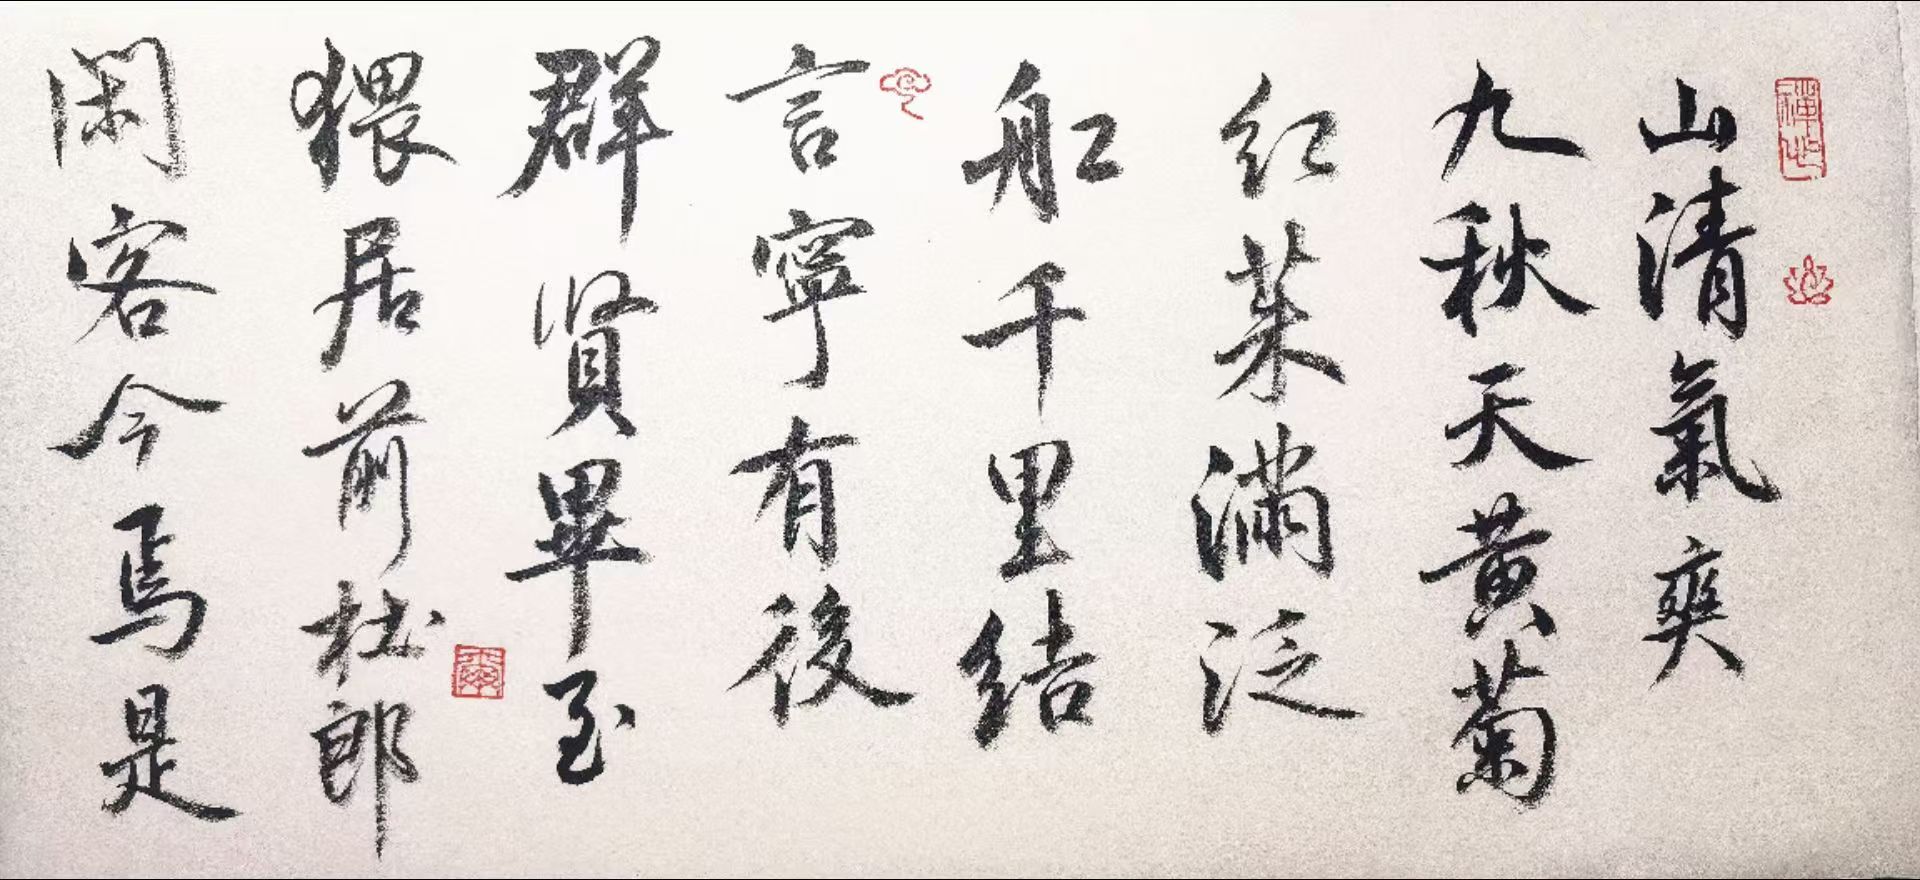 山清氣爽
九秋天黄菊
紅茱滿泛
船千里結
言寧有後
群賢畢至
猥居前杜郎
閑客今焉是